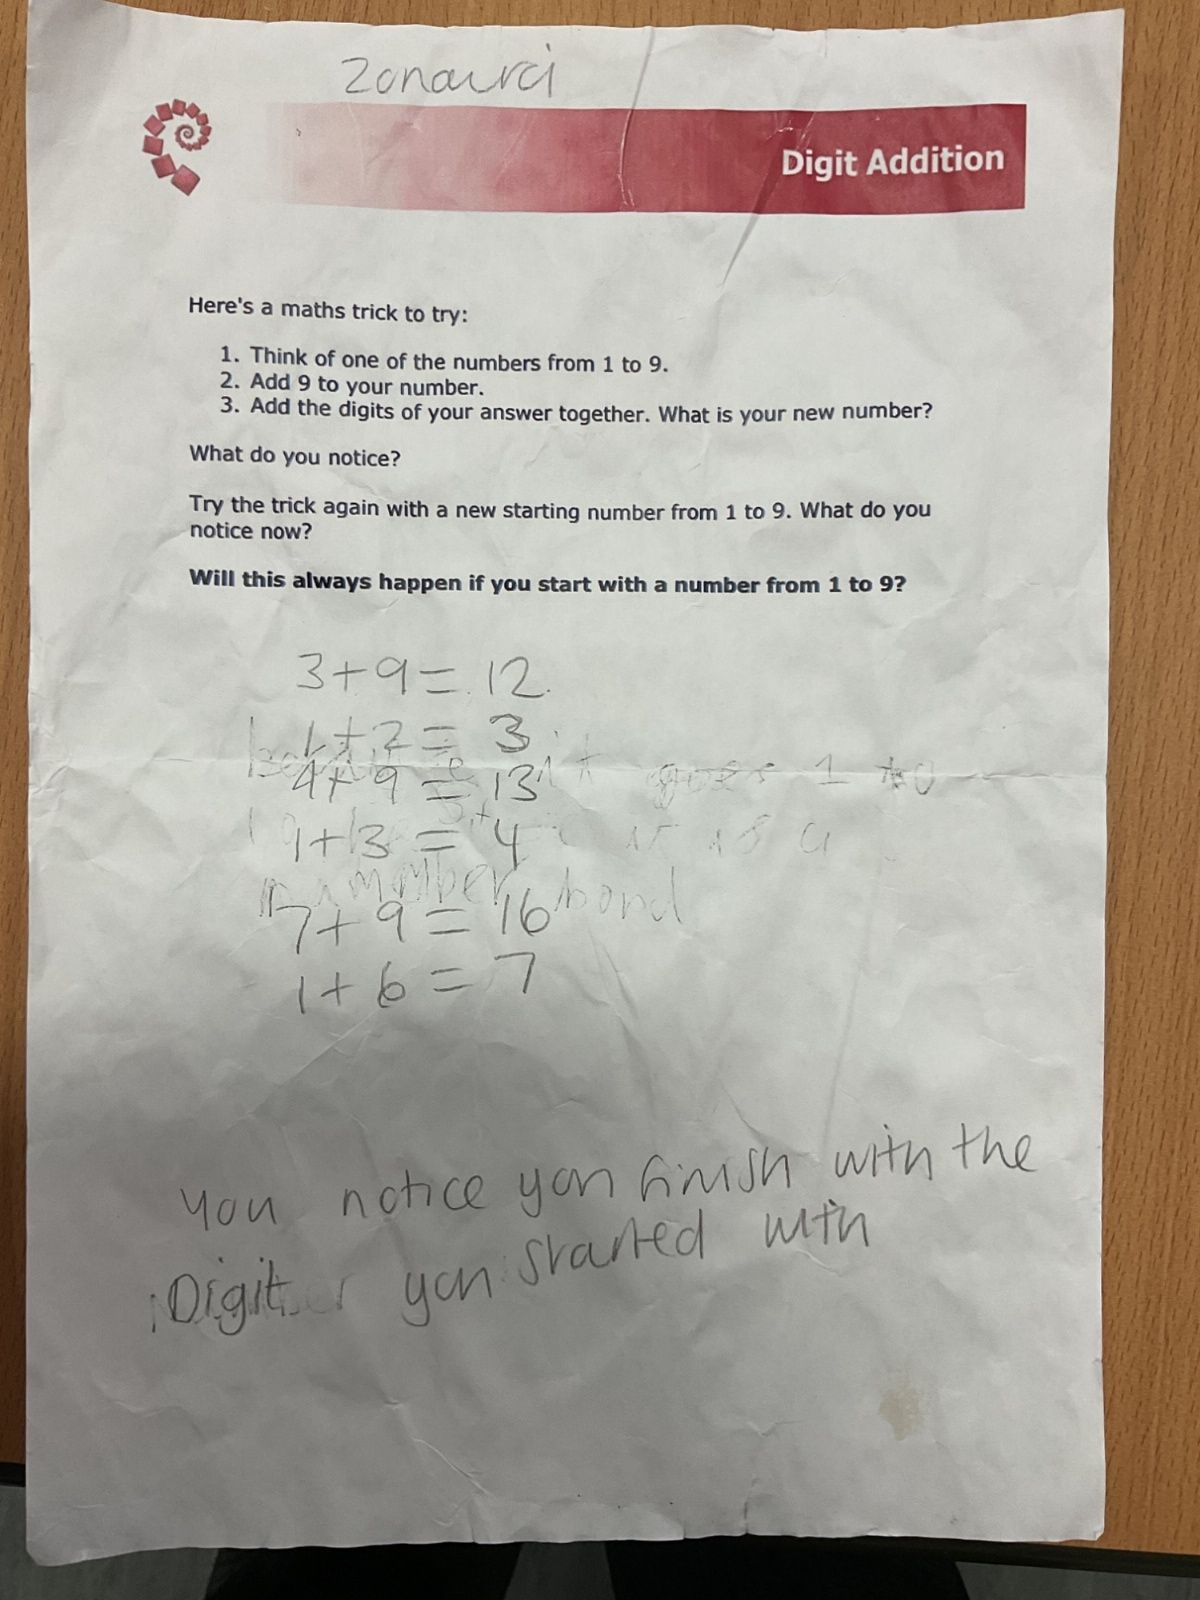 Digit Addition
Here's a maths trick to try:
1. Think of one of the numbers from 1 to 9.
2. Add 9 to your number.
3. Add the digits of your answer together. What is your new number?
What do you notice?
Try the trick again with a new starting number from 1 to 9. What do you
notice now?
Will this always happen if you start with a number from 1 to 9?
3+9=12
1+2=3
4+9=13
it goes 1 to
1+3=4
it is a
number bond
7+9=16
1+6=7
you notice you finish with the
Digit you started with